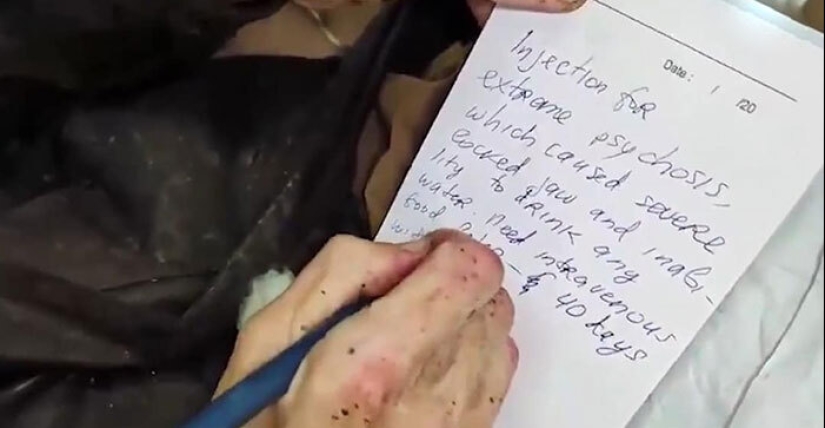 Date: / /20
Injection for
extreme psychosis,
which caused severe
locked jaw and inabi-
lity to drink any
water. need intravenous
food 40 days